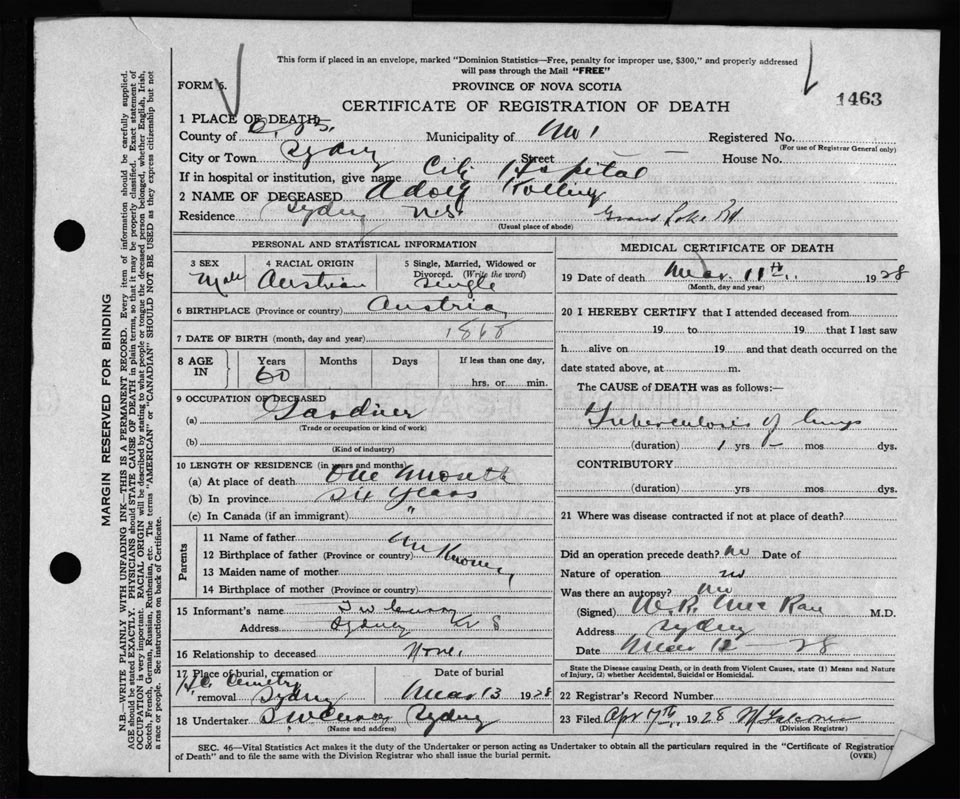 This form if placed in an envelope, marked "Dominion Statistics—Free, penalty for improper use, $300," and properly addressed
will pass through the Mail "FREE"
FORM 6.
PROVINCE OF NOVA SCOTIA
CERTIFICATE OF REGISTRATION OF DEATH
1463
1 PLACE OF DEATH
County of C. B. Municipality of Registered No.
(For use of Registrar General only)
City or Town Sydney Street House No.
If in hospital or institution, give name City Hospital
2 NAME OF DECEASED Adolf
Residence Sydney N.S. Grand Lake Rd
(Usual place of abode)
PERSONAL AND STATISTICAL INFORMATION
3 SEX Male
4 RACIAL ORIGIN Austrian
5 Single, Married, Widowed or Divorced. (Write the word) Single
6 BIRTHPLACE (Province or country) Austria
7 DATE OF BIRTH (month, day and year) 1868
8 AGE IN Years 60 Months Days If less than one day, hrs. or min.
9 OCCUPATION OF DECEASED
(a) Gardiner
(Trade or occupation or kind of work)
(b)
(Kind of industry)
10 LENGTH OF RESIDENCE (in years and months)
(a) At place of death One Month
(b) In province Six Years
(c) In Canada (if an immigrant) "
Parents
11 Name of father
12 Birthplace of father (Province or country)
13 Maiden name of mother
14 Birthplace of mother (Province or country)
15 Informant's name T W Curry
Address Sydney N S
16 Relationship to deceased None
17 Place of burial, cremation or removal Sydney
Date of burial Mar 13 1928
18 Undertaker T W Curry Sydney
(Name and address)
MEDICAL CERTIFICATE OF DEATH
19 Date of death Mar. 11th 1928
(Month, day and year)
20 I HEREBY CERTIFY that I attended deceased from
19 to 19 that I last saw
h alive on 19 and that death occurred on the
date stated above, at m.
The CAUSE of DEATH was as follows:—
Tuberculosis of lungs
(duration) 1 yrs – mos dys.
CONTRIBUTORY
(duration) yrs mos dys.
21 Where was disease contracted if not at place of death?
Did an operation precede death? no Date of
Nature of operation no
Was there an autopsy? no
(Signed) Mac Rae M.D.
Address Sydney
Date Mar 12 – 28
State the Disease causing Death, or in death from Violent Causes, state (1) Means and Nature
of Injury, (2) whether Accidental, Suicidal or Homicidal.
22 Registrar's Record Number
23 Filed Apr 7th 1928
(Division Registrar)
SEC. 46—Vital Statistics Act makes it the duty of the Undertaker or person acting as Undertaker to obtain all the particulars required in the "Certificate of Registration
of Death" and to file the same with the Division Registrar who shall issue the burial permit.
(OVER)
MARGIN RESERVED FOR BINDING
N.B.—WRITE PLAINLY WITH UNFADING INK—THIS IS A PERMANENT RECORD. Every item of information should be carefully supplied.
AGE should be stated EXACTLY. PHYSICIANS should STATE CAUSE OF DEATH in plain terms, so that it may be properly classified. Exact statement of
OCCUPATION is very important. RACIAL ORIGIN will be described by stating to what people or tongue the deceased person belonged, whether English, Irish,
Scotch, French, German, Russian, Ruthenian, etc. The terms "AMERICAN" or "CANADIAN" SHOULD NOT BE USED as they express citizenship but not
a race or people. See instructions on back of Certificate.